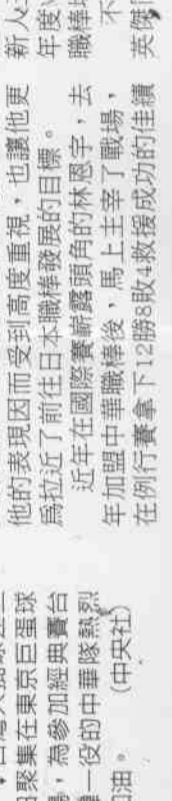 日聚集在東京巨蛋球
，為參加經典賽台
一役的中華隊熱烈
加油。 (中央社)
他的表現因而受到高度重視，也讓他更
為拉近了前往日本職棒發展的目標。
近年在國際賽嶄露頭角的林恩宇，去
年加盟中華職棒後，馬上主宰了戰場，
在例行賽拿下12勝8敗4救援成功的佳績
新人
年度
職棒
不
英傑